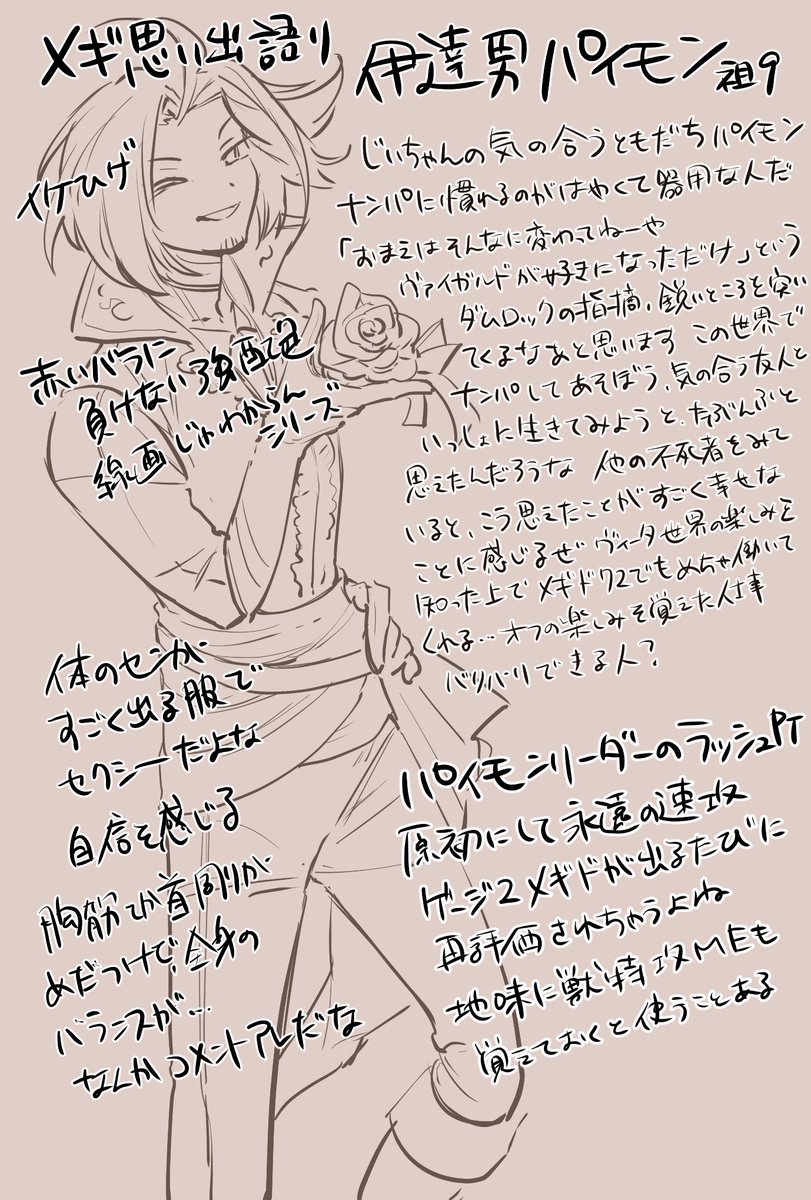 メギ思い出語り
伊達男パイモン祖9
イケひげ
じいちゃんの気の合うともだちパイモン
ナンパに慣れるのがはやくて器用な人だ
「おまえはそんなに変わってねーや
ヴァイガルドが好きになっただけ」という
ダムロックの指摘、鋭いところを突い
てくるなあと思います この世界で
ナンパしてあそぼう、気の合う友人と
いっしょに生きてみようと、たぶんふと
思えたんだろうな 他の不死者をみて
いると、こう思えたことがすごく幸せな
ことに感じるぜ ヴィータ世界の楽しみを
知った上でメギド72でもめちゃ働いて
くれる…オフの楽しみを覚えた仕事
バリバリできる人?
赤いバラに
負けない強配色
線画じゃわからん
シリーズ
体のセンが
すごく出る服で
セクシーだよな
自信を感じる
胸筋てか首周りが
めだつけど、全身の
バランスが…
なんかコメントアレだな
パイモンリーダーのラッシュPT
原初にして永遠の速攻
ゲージ2メギドが出るたびに
再評価されちゃうよね
地味に獣特攻MEも
覚えておくと使うことある